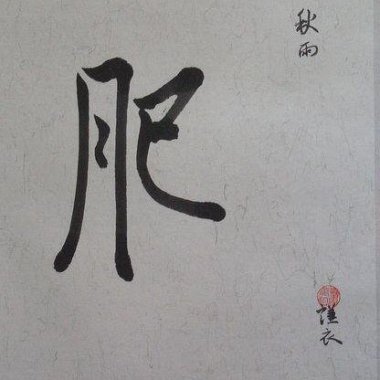 秋雨
肥
謹衣